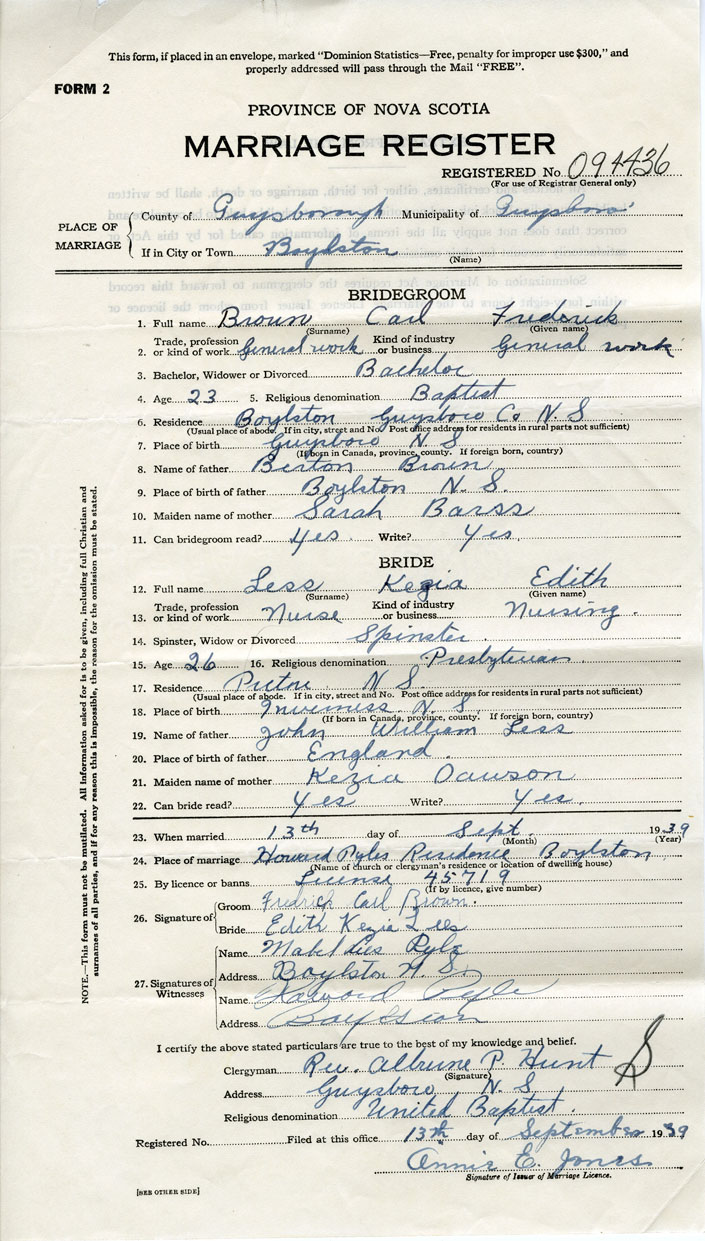 This form, if placed in an envelope, marked "Dominion Statistics—Free, penalty for improper use $300," and
properly addressed will pass through the Mail "FREE".
FORM 2
PROVINCE OF NOVA SCOTIA
MARRIAGE REGISTER
REGISTERED No. 094436
(For use of Registrar General only)
PLACE OF MARRIAGE
County of Guysborough Municipality of Guysboro
If in City or Town Boylston
(Name)
BRIDEGROOM
1. Full name Brown Carl Frederick
(Surname) (Given name)
2. Trade, profession or kind of work General work Kind of industry or business General work
3. Bachelor, Widower or Divorced Bachelor
4. Age 23 5. Religious denomination Baptist
6. Residence Boylston Guysboro Co N.S
(Usual place of abode. If in city, street and No. Post office address for residents in rural parts not sufficient)
7. Place of birth Guysboro N.S
(If born in Canada, province, county. If foreign born, country)
8. Name of father Berton Brown
9. Place of birth of father Boylston N.S.
10. Maiden name of mother Sarah Barss
11. Can bridegroom read? Yes. Write? Yes.
BRIDE
12. Full name Less Kezia Edith
(Surname) (Given name)
13. Trade, profession or kind of work Nurse Kind of industry or business Nursing.
14. Spinster, Widow or Divorced Spinster.
15. Age 26 16. Religious denomination Presbyterian
17. Residence Pictou N.S.
(Usual place of abode. If in city, street and No. Post office address for residents in rural parts not sufficient)
18. Place of birth Inverness N.S.
(If born in Canada, province, county. If foreign born, country)
19. Name of father John William Less
20. Place of birth of father England.
21. Maiden name of mother Kezia Dawson
22. Can bride read? Yes Write? Yes.
23. When married 13th day of Sept. 1939
(Month) (Year)
24. Place of marriage Howard Pyles Residence Boylston
(Name of church or clergyman's residence or location of dwelling house)
25. By licence or banns License 45719
(If by licence, give number)
26. Signature of
Groom Fredrick Carl Brown.
Bride Edith Kezia Lees
27. Signatures of Witnesses
Name Mabel Pyle
Address Boylston N.S.
Name Howard Pyle
Address Boylston
I certify the above stated particulars are true to the best of my knowledge and belief.
Clergyman Rev. P. Hunt
(Signature)
Address Guysboro N.S
Religious denomination United Baptist.
Registered No. Filed at this office 13th day of September 1939
Annie E. Jones
Signature of Issuer of Marriage Licence.
[SEE OTHER SIDE]
NOTE.—This form must not be mutilated. All information asked for is to be given, including full Christian and
surnames of all parties, and if for any reason this is impossible, the reason for the omission must be stated.